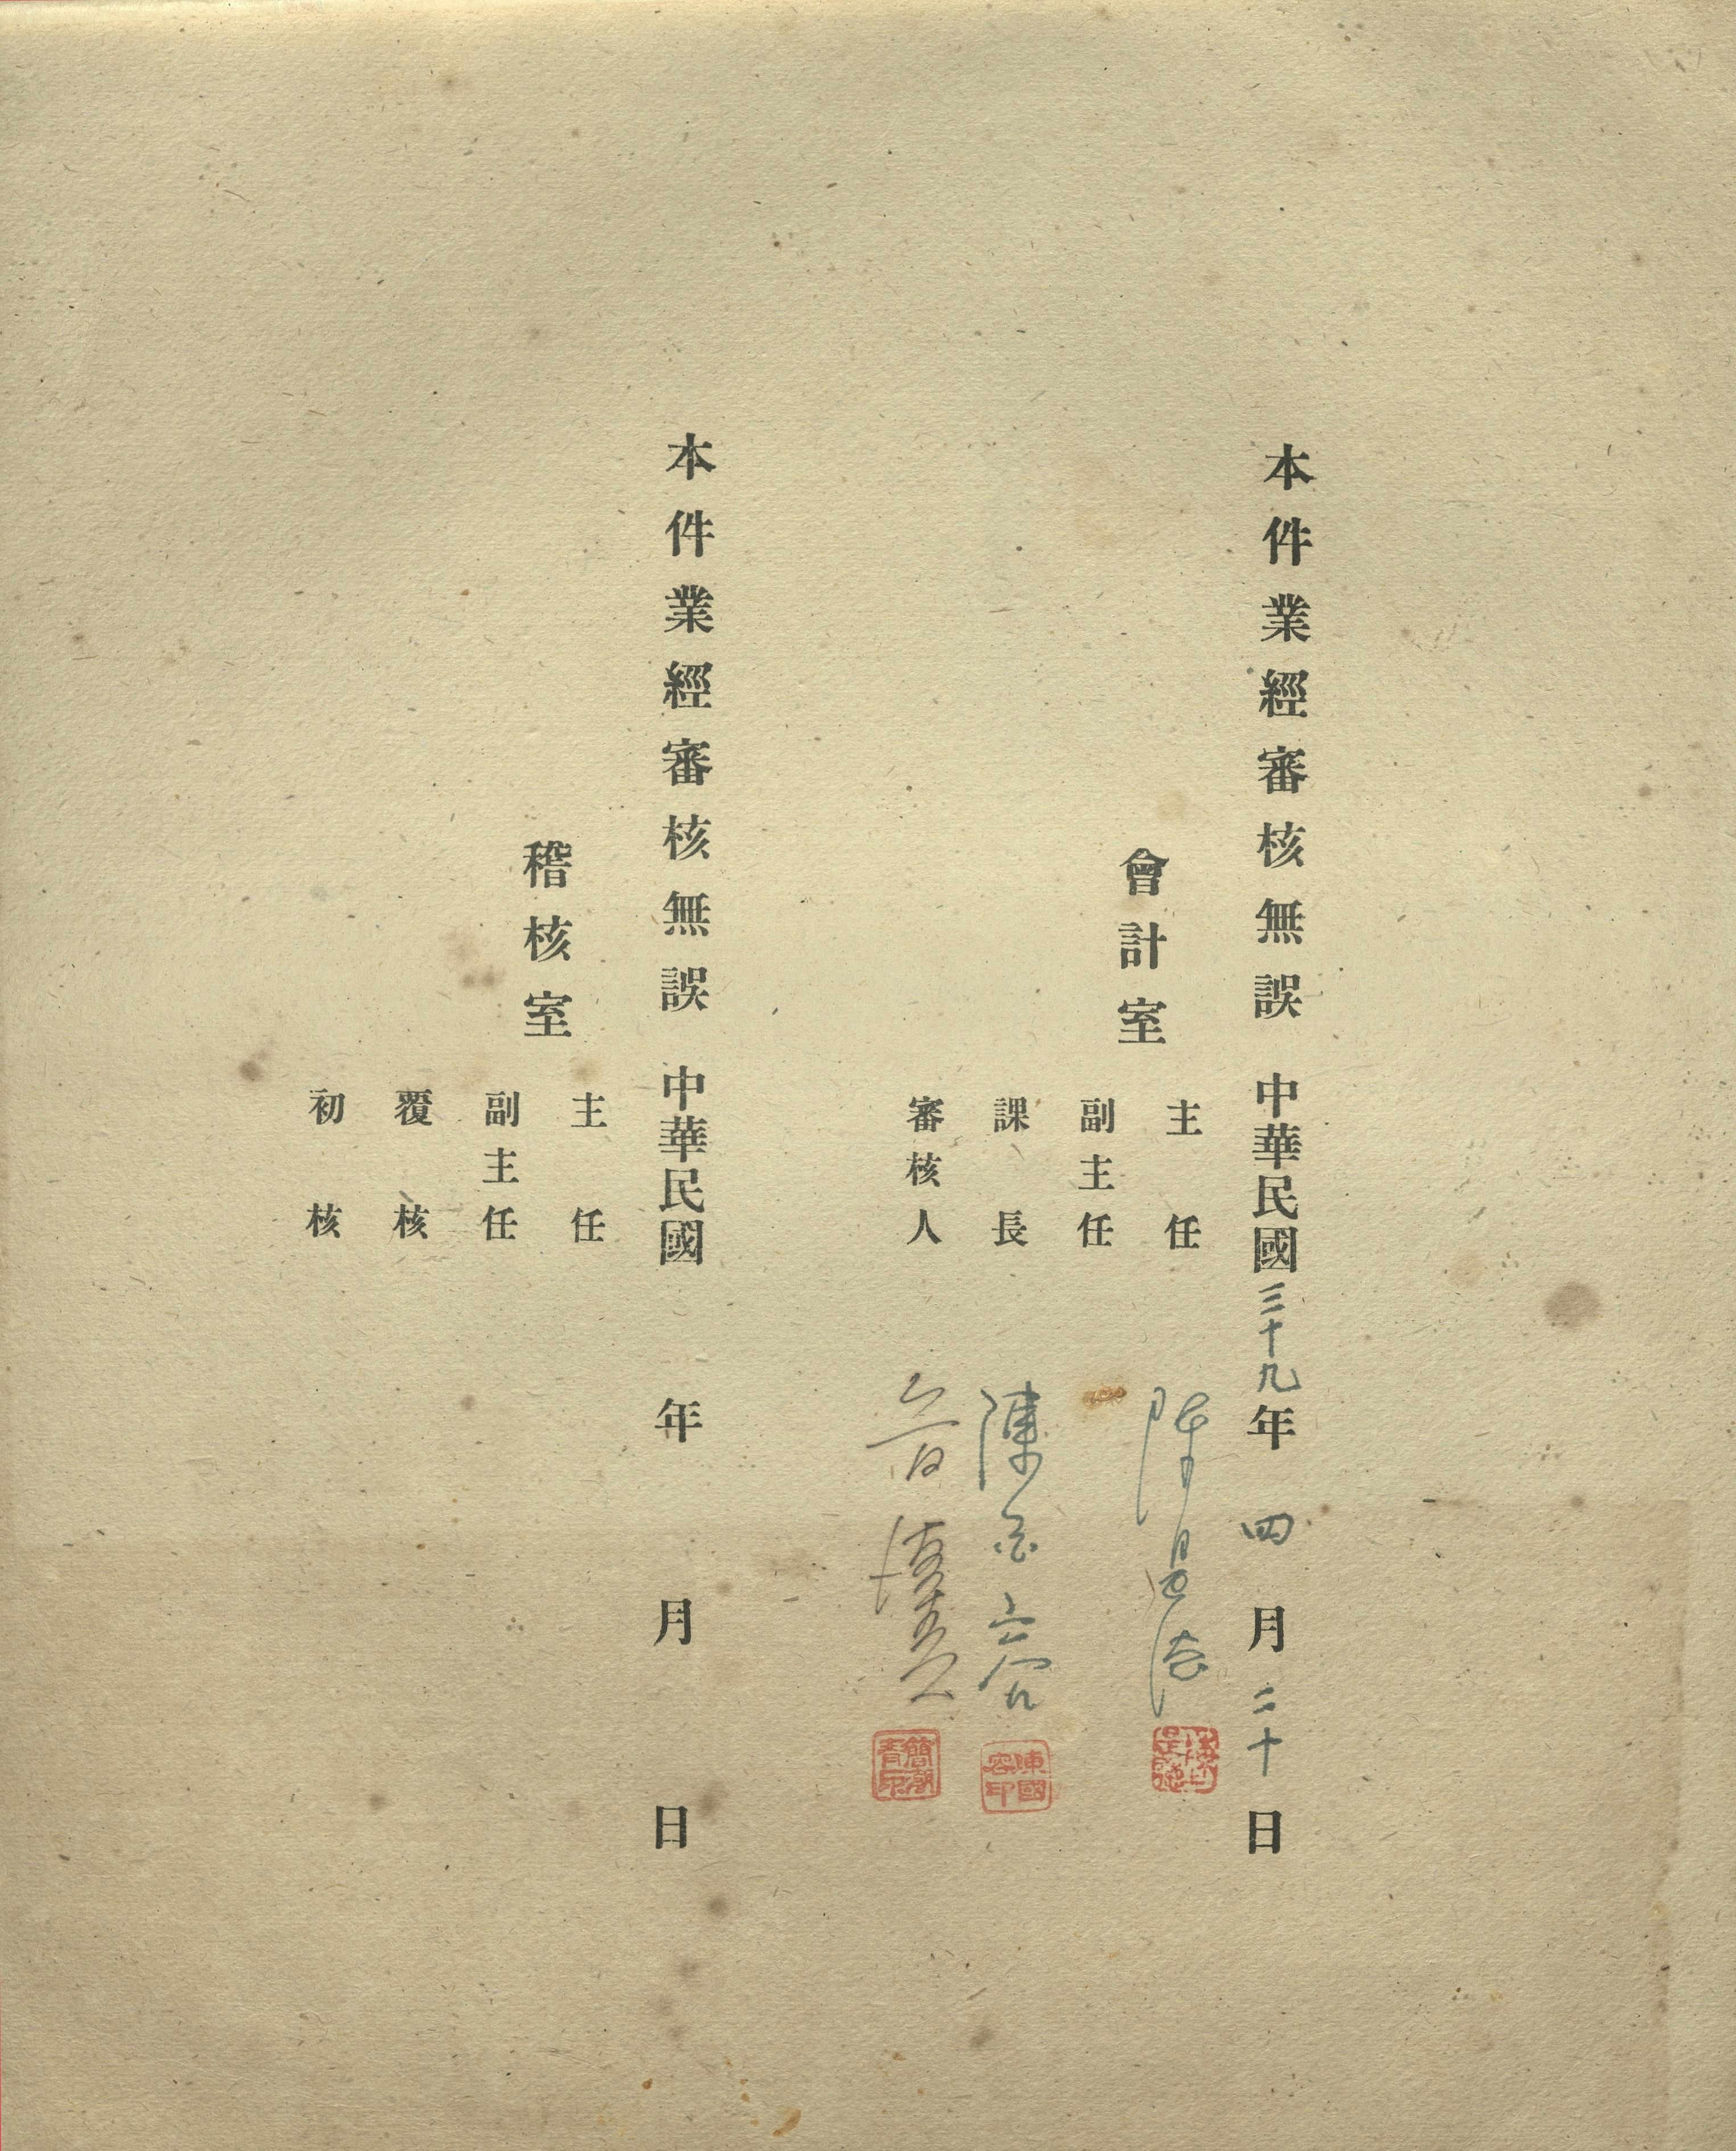 本件業經審核無誤 中華民國三十九年四月二十日
會計室
主任
副主任
課長 陳國容
審核人
陳國容印
本件業經審核無誤 中華民國 年 月 日
稽核室
主任
副主任
覆核
初核